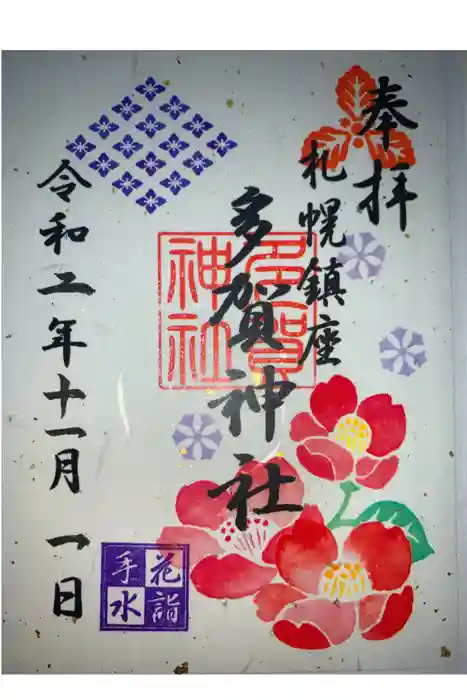 奉拝
札幌鎮座
多賀神社
多賀神社
令和二年十一月一日
花詣
手水